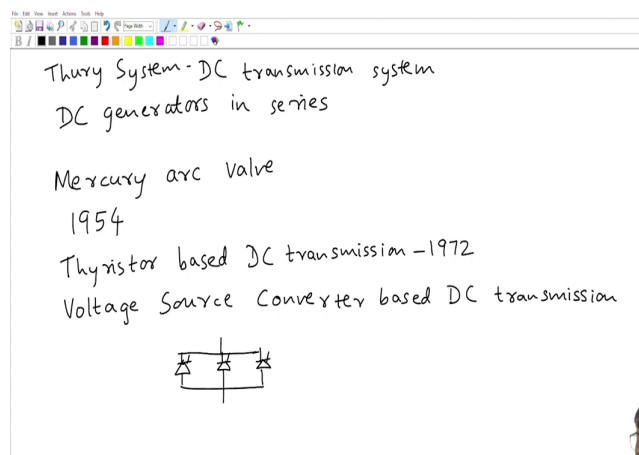 File Edit View Insert Actions Tools Help
Page Width
B I
Thury System - DC transmission system
DC generators in series
Mercury arc valve
1954
Thyristor based DC transmission - 1972
Voltage Source Converter based DC transmission